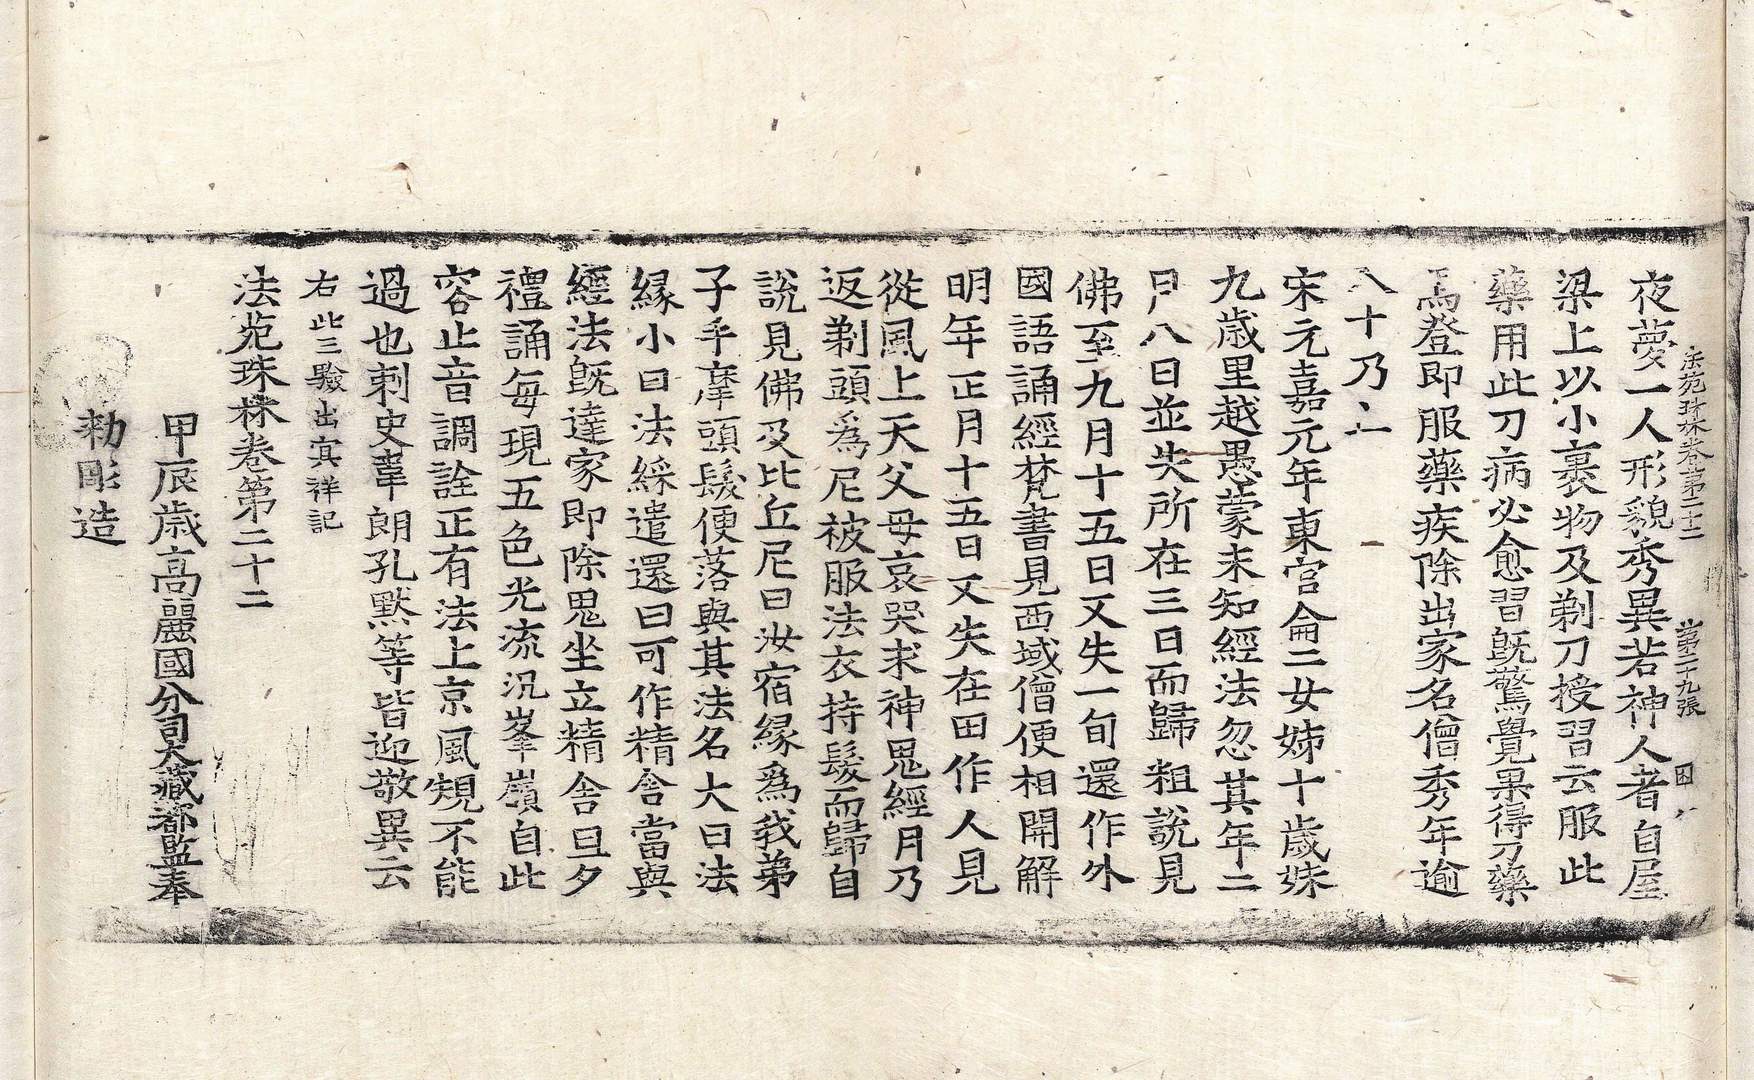 法苑珠林卷第二十二 第二十九張 困
夜夢一人形貌秀異若神人者自屋
梁上以小裹物及剃刀授習云服此
藥用此刀病必愈習既驚覺果得刀藥
焉登即服藥疾除出家名僧秀年逾
八十乃亡
宋元嘉元年東官侖二女姊十歲妹
九歲里越愚蒙未知經法忽其年二
月八日並失所在三日而歸粗說見
佛至九月十五日又失一旬還作外
國語誦經梵書見西域僧便相開解
明年正月十五日又失在田作人見
從風上天父母哀哭求神鬼經月乃
返剃頭爲尼被服法衣持髮而歸自
說見佛及比丘尼曰汝宿緣爲我弟
子手摩頭髮便落與其法名大曰法
緣小曰法綵遣還曰可作精舍當與
經法既達家即除鬼坐立精舍旦夕
禮誦每現五色光流汎峯嶺自此
容止音調詮正有法上京風規不能
過也刺史韋朗孔默等皆迎敬異云
右此三驗出冥祥記
法苑珠林卷第二十二
甲辰歲高麗國分司大藏都監奉
勅彫造